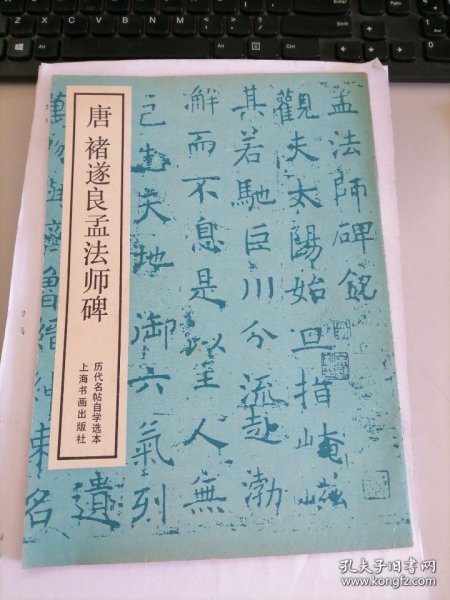 唐 褚遂良孟法师碑
历代名帖自学选本
上海书画出版社
孟法師碑銘
觀夫太陽始旦指崦嵫
其若馳巨川分流赴渤
澥而不息是以至人無
己天地御六氣列
遺
萬物齊魯縉紳束名
孔夫子旧书网
www.kongfz.com